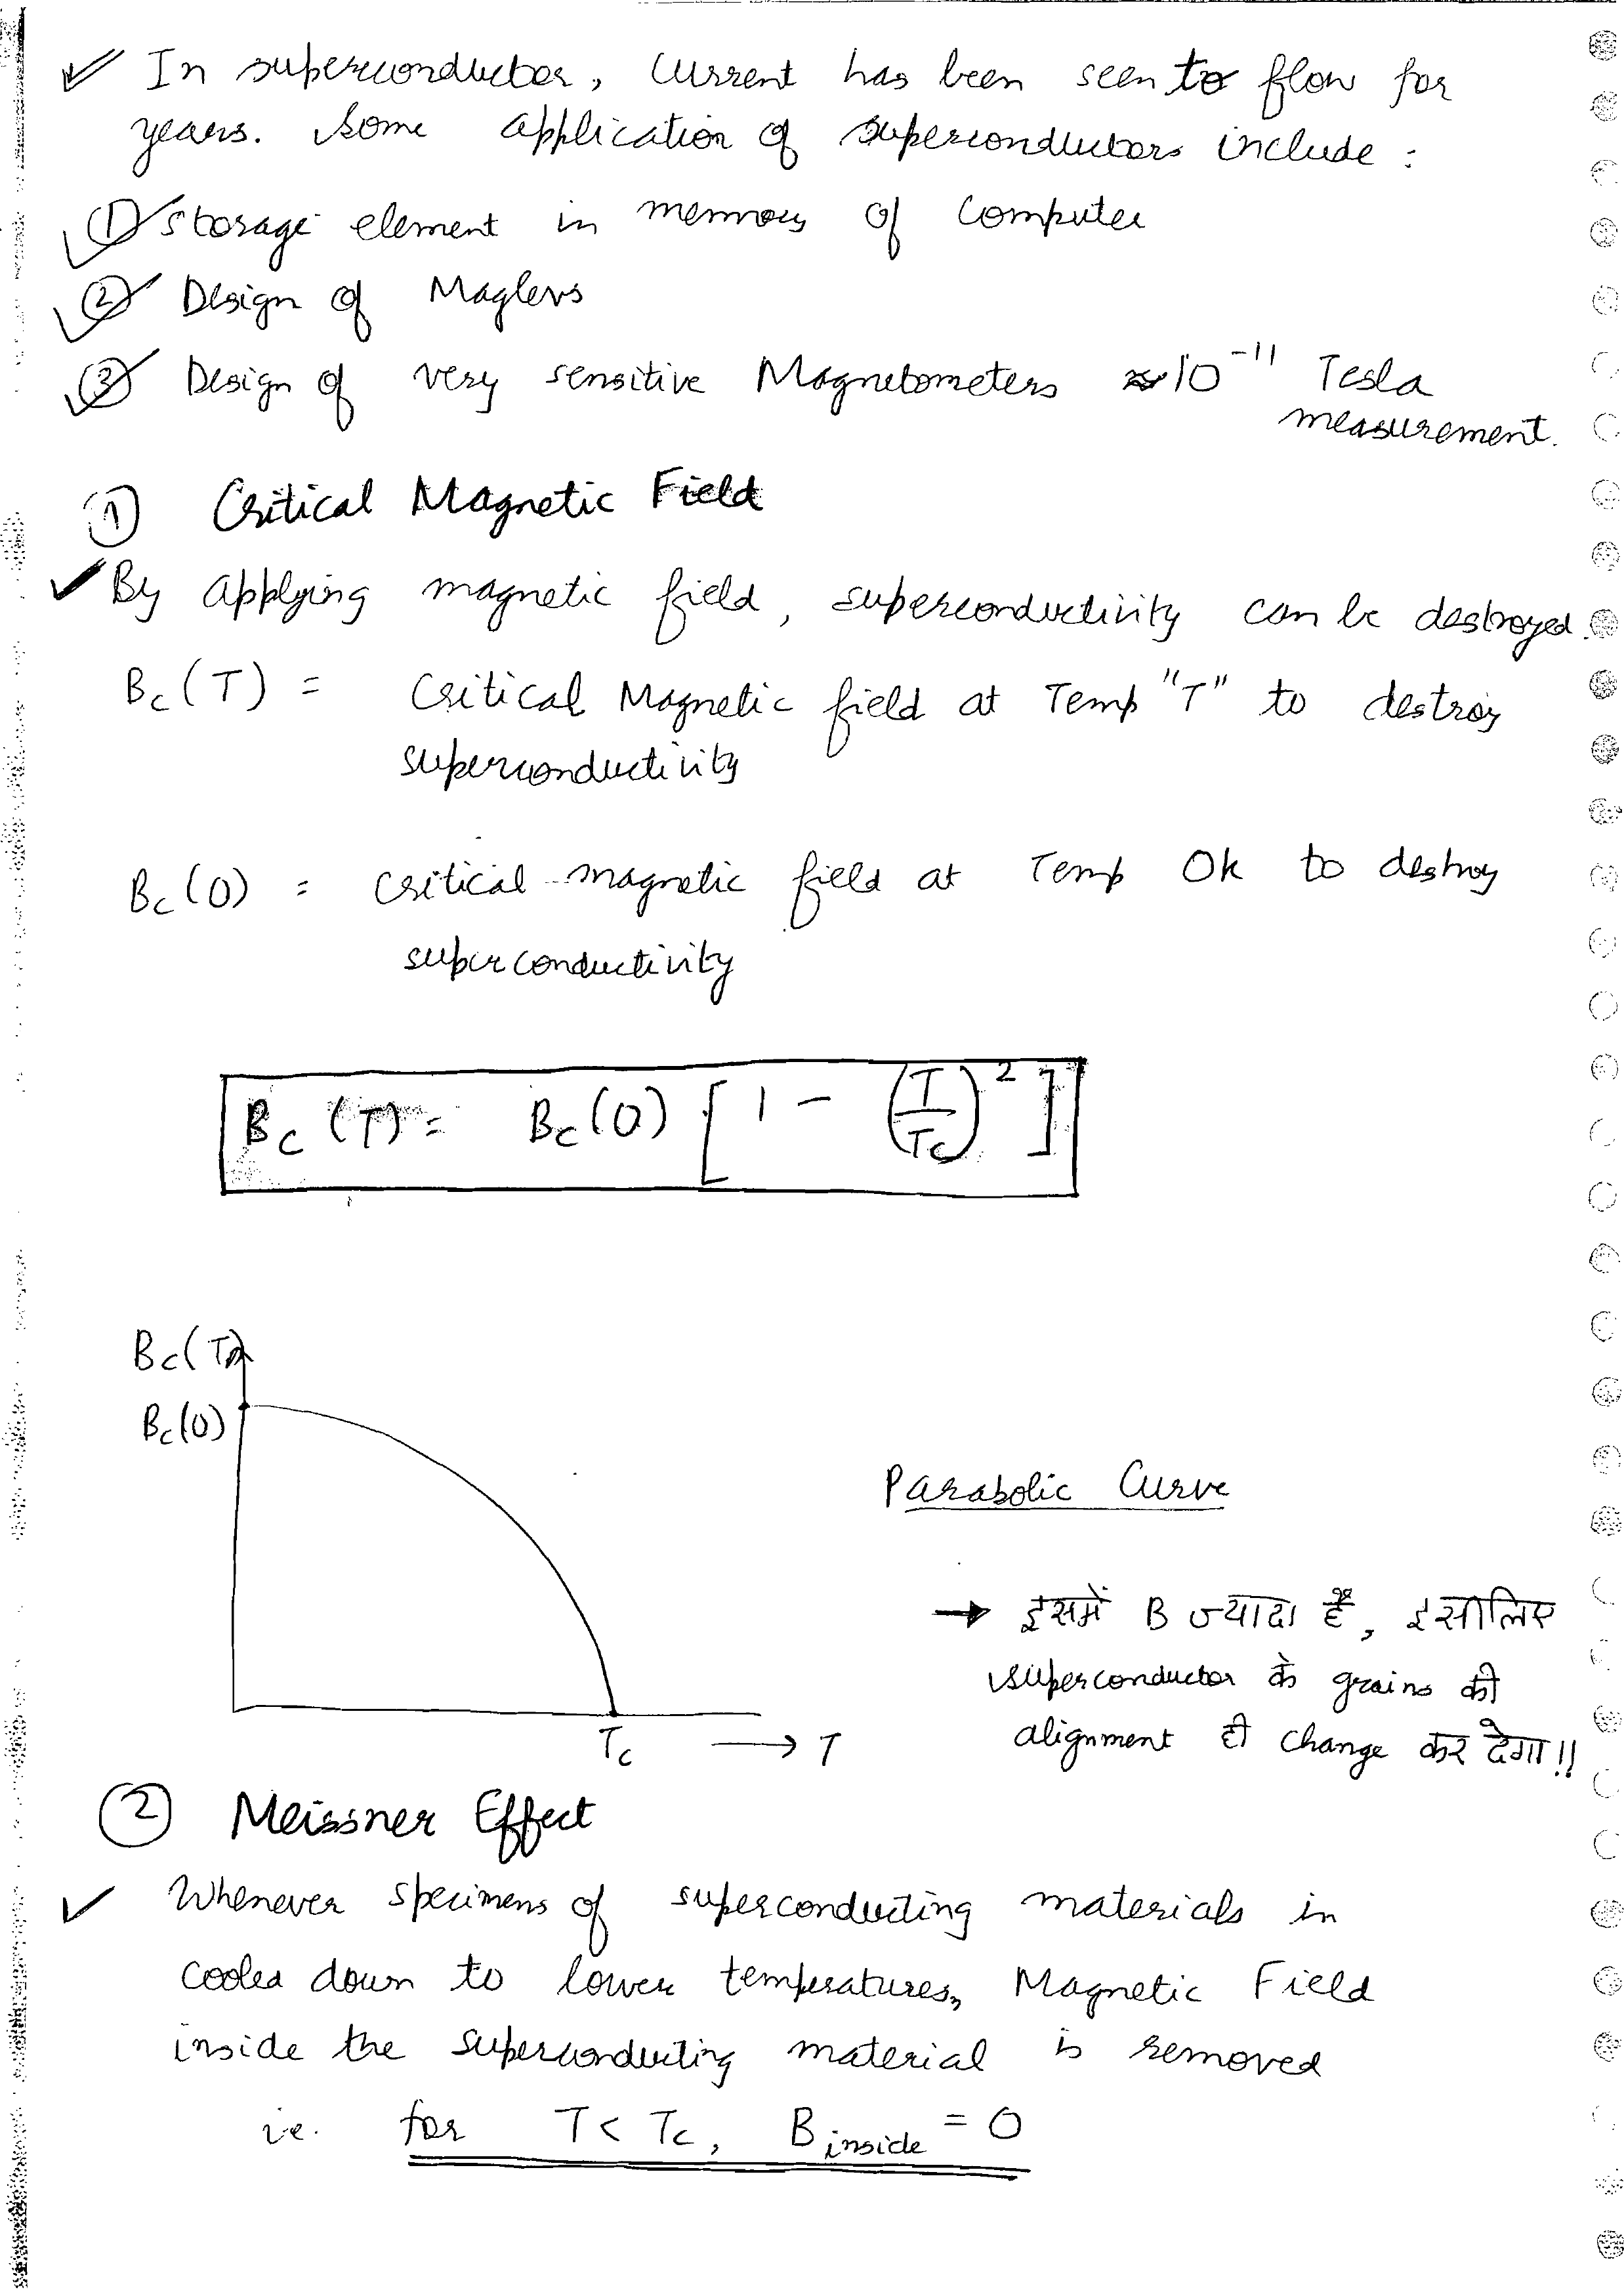 ✓ In superconductor, Current has been seen to flow for
years. Some application of superconductors include :
① Storage element in memory of Computer
② Design of Maglevs
③ Design of very sensitive Magnetometers ≈10⁻¹¹ Tesla
measurement.
① Critical Magnetic Field
✓ By applying magnetic field, superconductivity can be destroyed.
Bc(T) = Critical Magnetic field at Temp "T" to destroy
superconductivity
Bc(0) = critical magnetic field at Temp 0k to destroy
superconductivity
Bc(T) = Bc(0) [1 - (T/Tc)²]
Bc(T)
Bc(0)
Parabolic Curve
→ इसमें B ज्यादा है, इसीलिए
superconductor के grains की
alignment ही change कर देगा!!
Tc → T
② Meissner Effect
✓ Whenever specimens of superconducting materials in
cooled down to lower temperatures, Magnetic Field
inside the superconducting material is removed
i.e. for T < Tc, B inside = 0